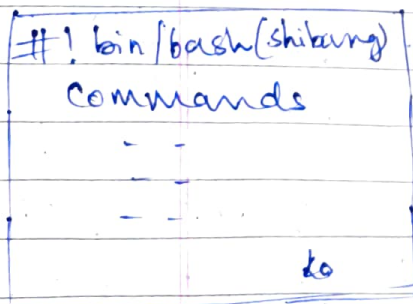 #! bin/bash(shibang)
Commands
- -
- -
- -